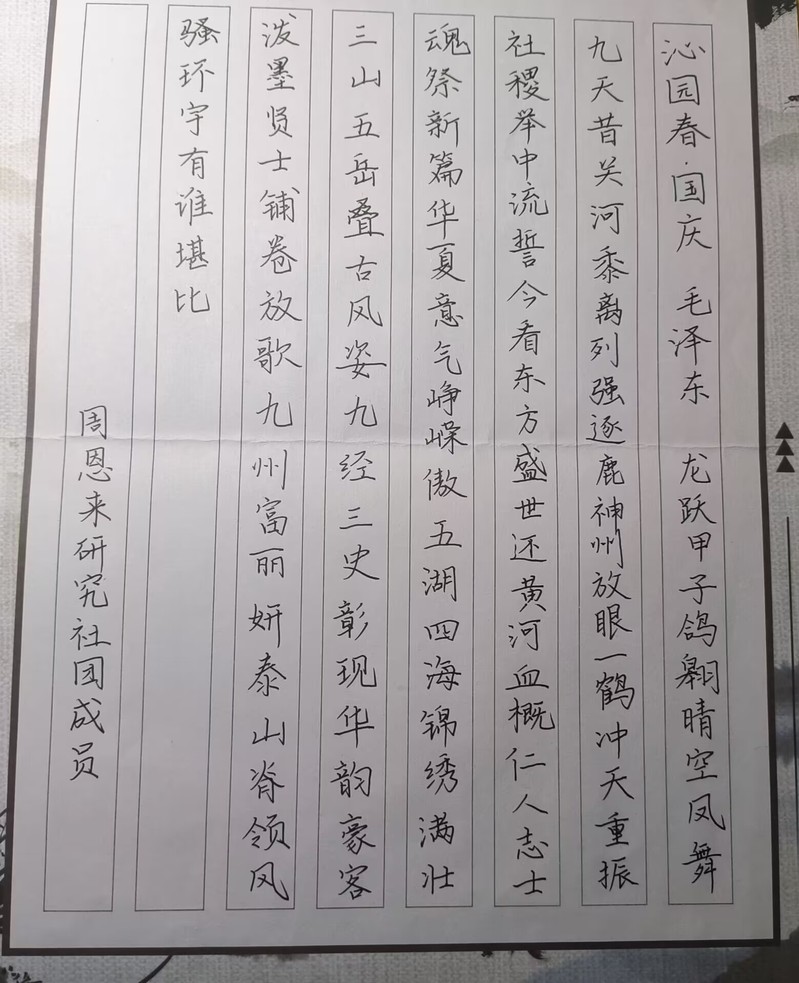 沁园春·国庆 毛泽东 龙跃甲子鸽翱晴空凤舞
九天昔关河黍离列强逐鹿神州放眼一鹤冲天重振
社稷举中流誓今看东方盛世还黄河血概仁人志士
魂祭新篇华夏意气峥嵘傲五湖四海锦绣满壮
三山五岳叠古风姿九经三史彰现华韵豪客
泼墨贤士铺卷放歌九州富丽妍泰山脊领风
骚环宇有谁堪比
周恩来研究社团成员